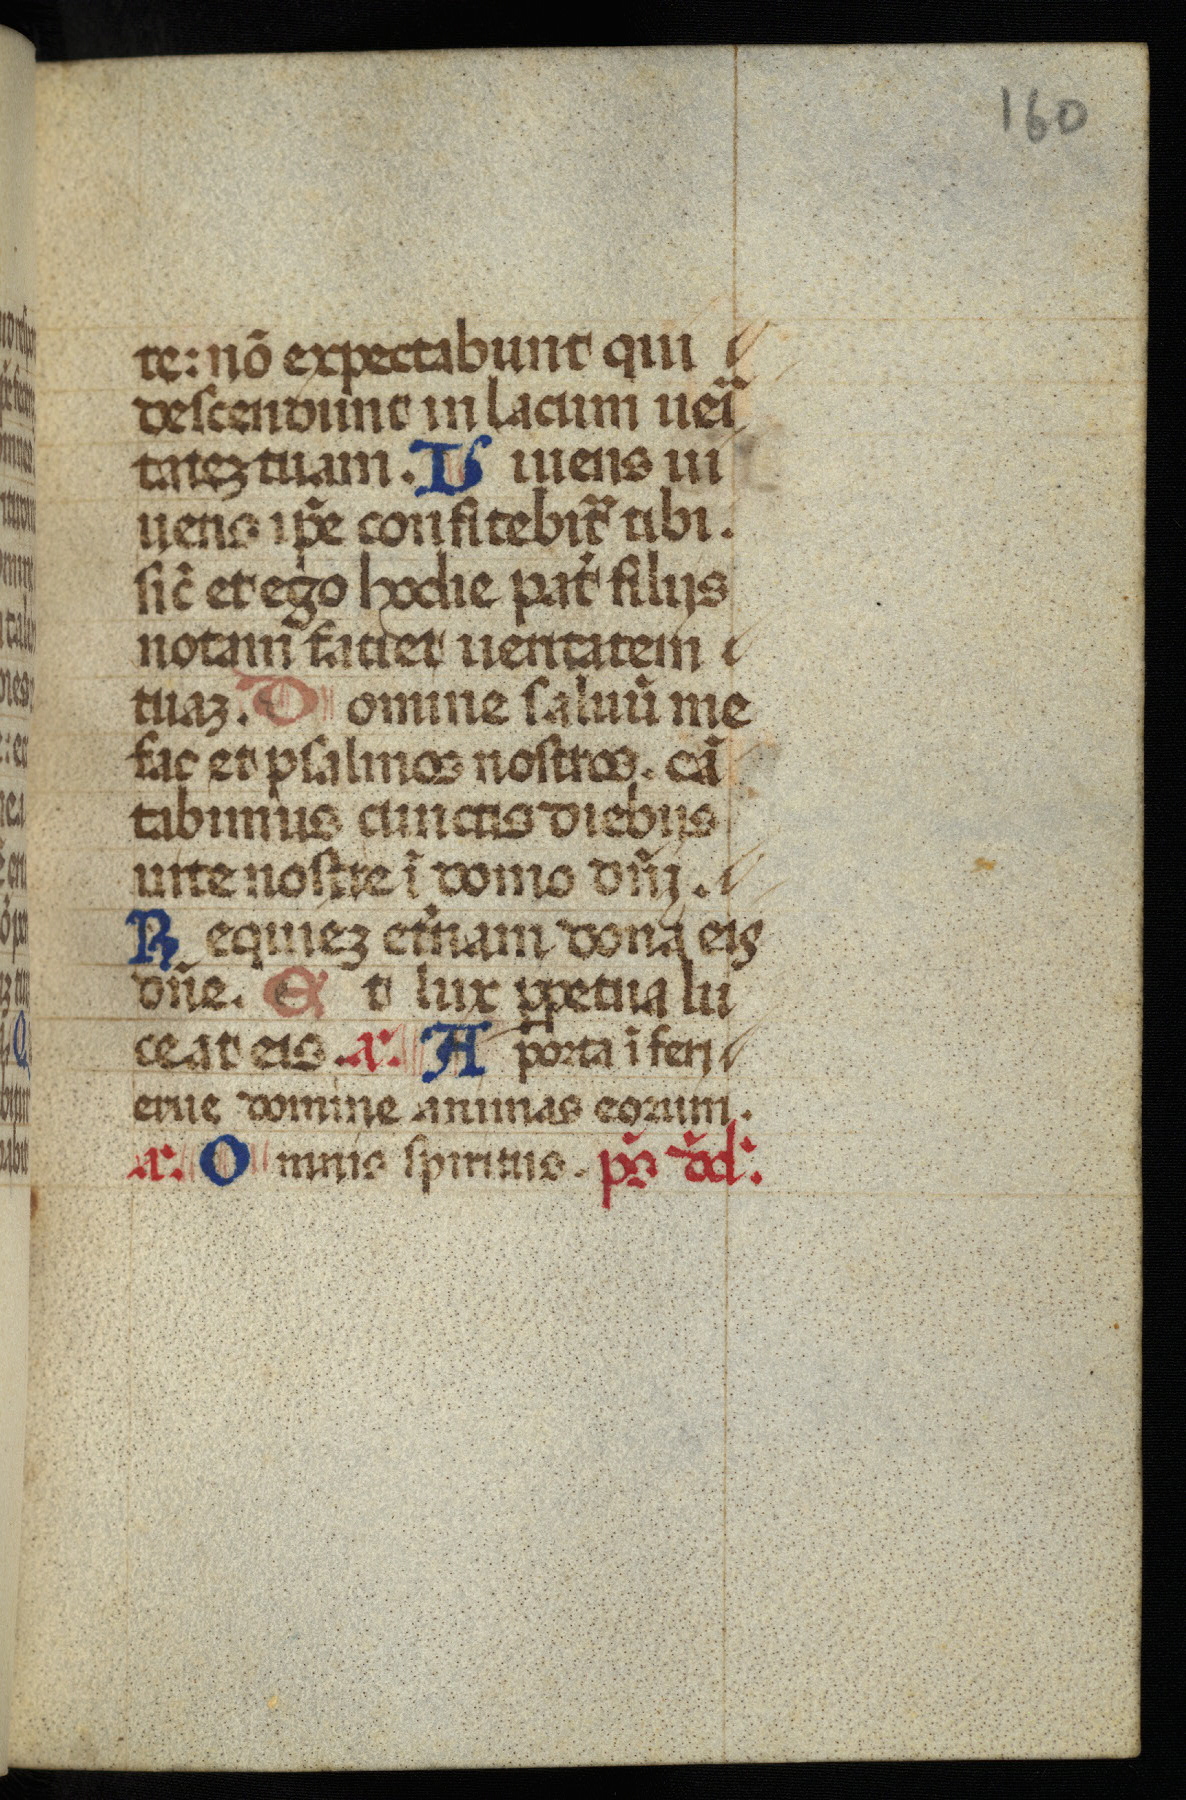 160
te: nō expectabunt qui
descendunt in lacum ueī
tatez tuam. V iuens ui
uens ip̄e confitebit᷑ tibi.
sic̄ et ego hodie pat̄ filijs
notam faciet ueritatem
tuaz. D omine saluū me
fac et psalmos nostros. cā
tabimus cunctis diebus
uite nostre ī domo dn̄i.
R equiez et̄nam dona eis
dn̄e. E t lux ꝑpetua lu
ceat eis. a͛. A porta īferi
erue domine animas eorum.
a͛. O mnis spiritus. ps̄ dd̄: